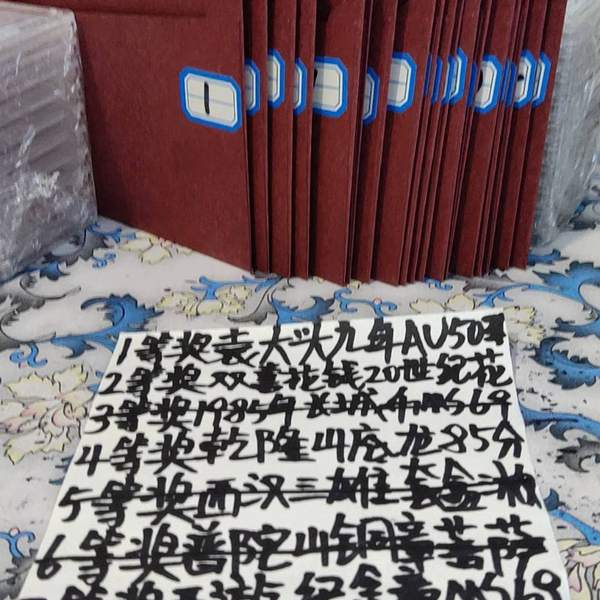 1
1等奖袁大头九年AU50
2等奖双喜花钱20世纪花
3等奖1985年长城币MS69
4等奖乾隆山底龙85分
5等奖西汉三雄套盒
6等奖普陀山铜章菩萨
等奖西游纪金章MS69